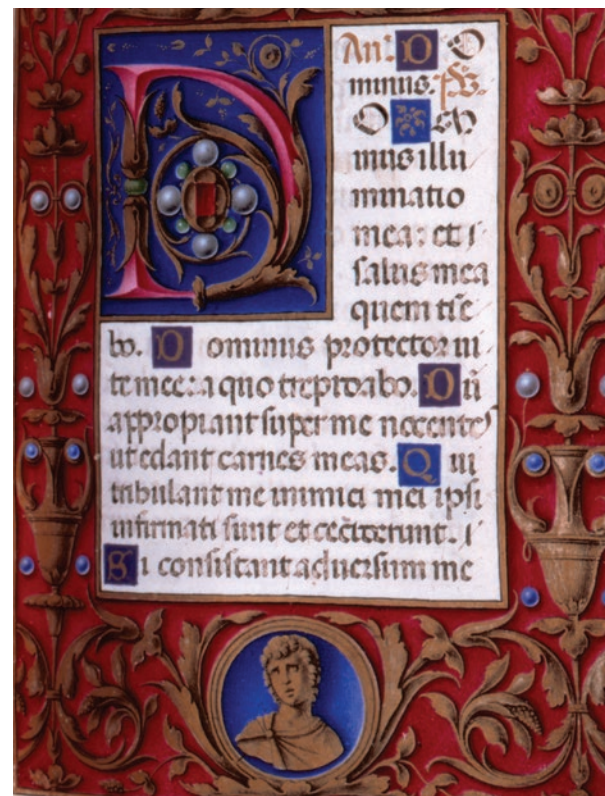 D
An. D O
minus. ps.
O mi
nus illu
minatio
mea: et
salus mea
quem tie
bo. D ominus protector ui
te mee: a quo trepidabo. Dū
appropiant super me nocentes
ut edant carnes meas. Q ui
tribulant me inimici mei ipsi
infirmati sunt et ceciderunt.
S i consistant aduersum me